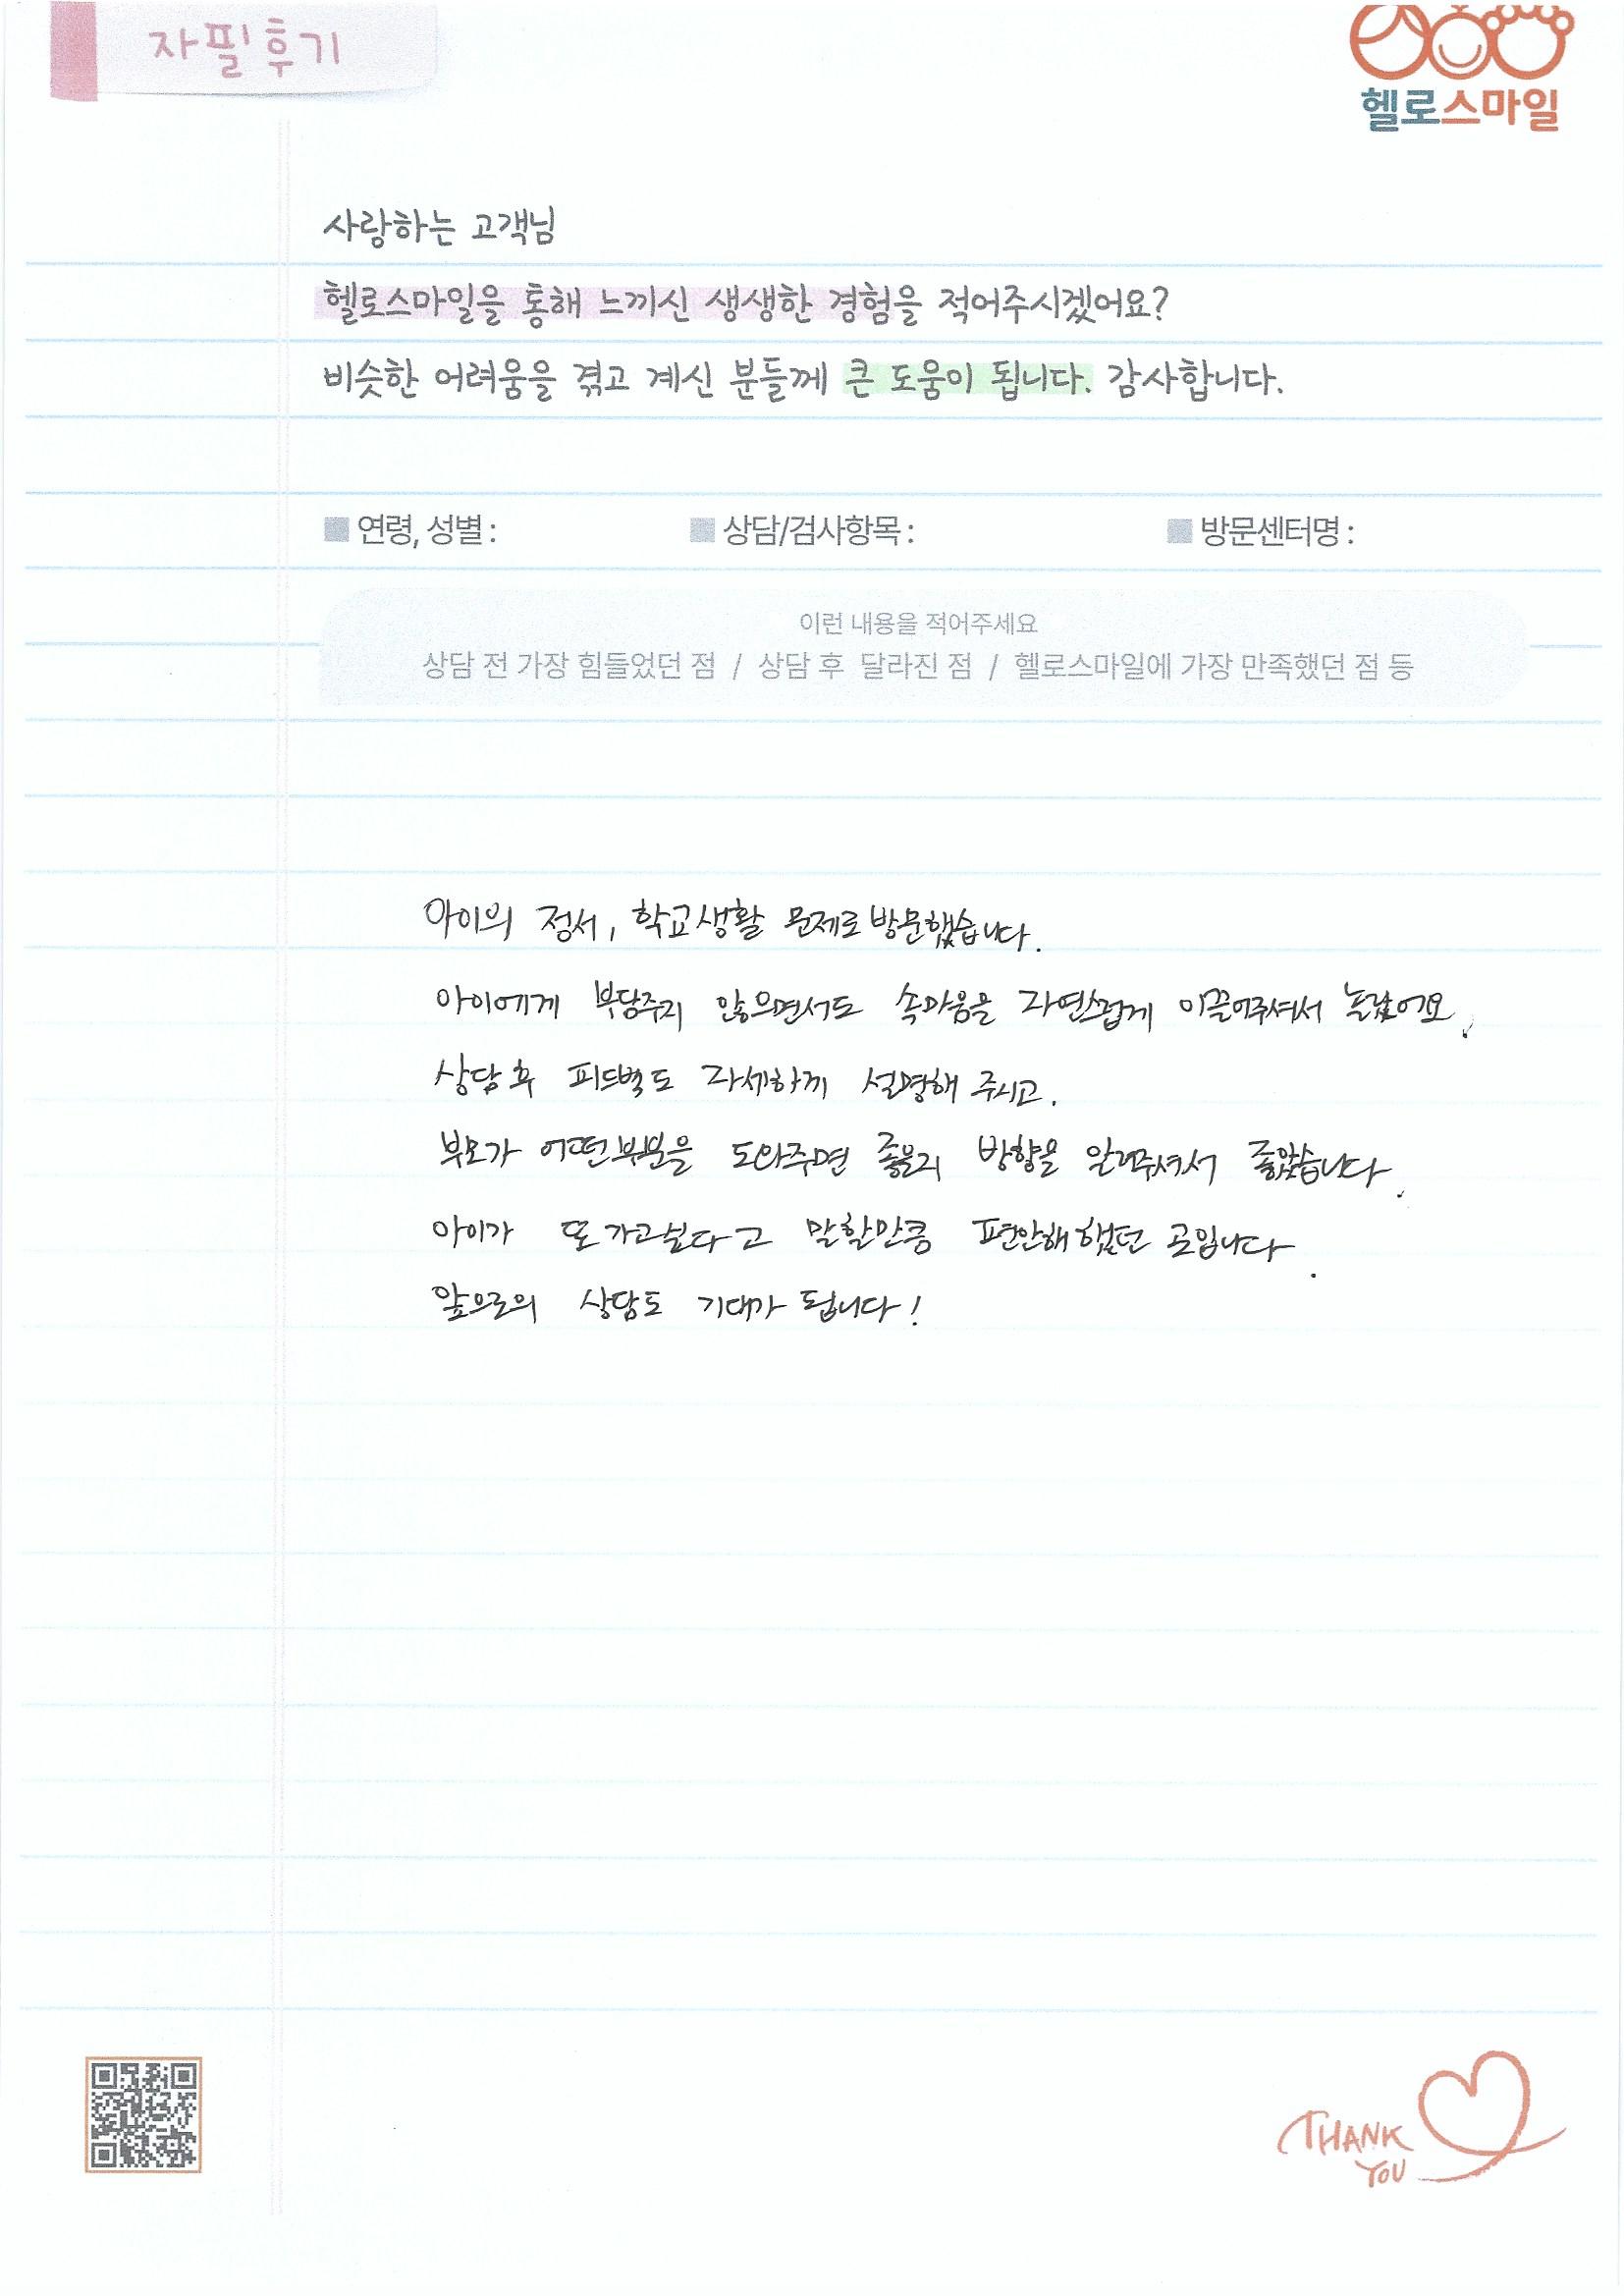 자필후기
헬로스마일
사랑하는 고객님
헬로스마일을 통해 느끼신 생생한 경험을 적어주시겠어요?
비슷한 어려움을 겪고 계신 분들께 큰 도움이 됩니다. 감사합니다.
■ 연령, 성별 : ■ 상담/검사항목 : ■ 방문센터명 :
이런 내용을 적어주세요
상담 전 가장 힘들었던 점 / 상담 후 달라진 점 / 헬로스마일에 가장 만족했던 점 등
아이의 정서, 학교생활 문제로 방문했습니다.
아이에게 부담주지 않으면서도 속마음을 자연스럽게 이끌어주셔서 놀랐어요.
상담 후 피드백도 자세하게 설명해 주시고.
부모가 어떤부분을 도와주면 좋을지 방향을 알려주셔서 좋았습니다.
아이가 또 가고싶다고 말할만큼 편안해 했던 곳입니다.
앞으로의 상담도 기대가 됩니다!
THANK
YOU